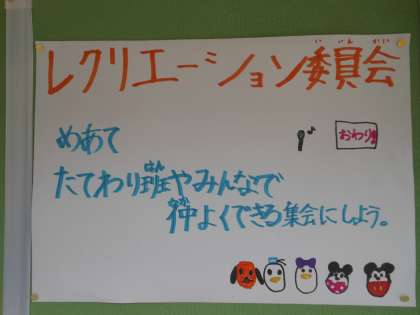 レクリエーション委員会
めあて
おわり
たてわり班やみんなで
仲よくできる集会にしよう。